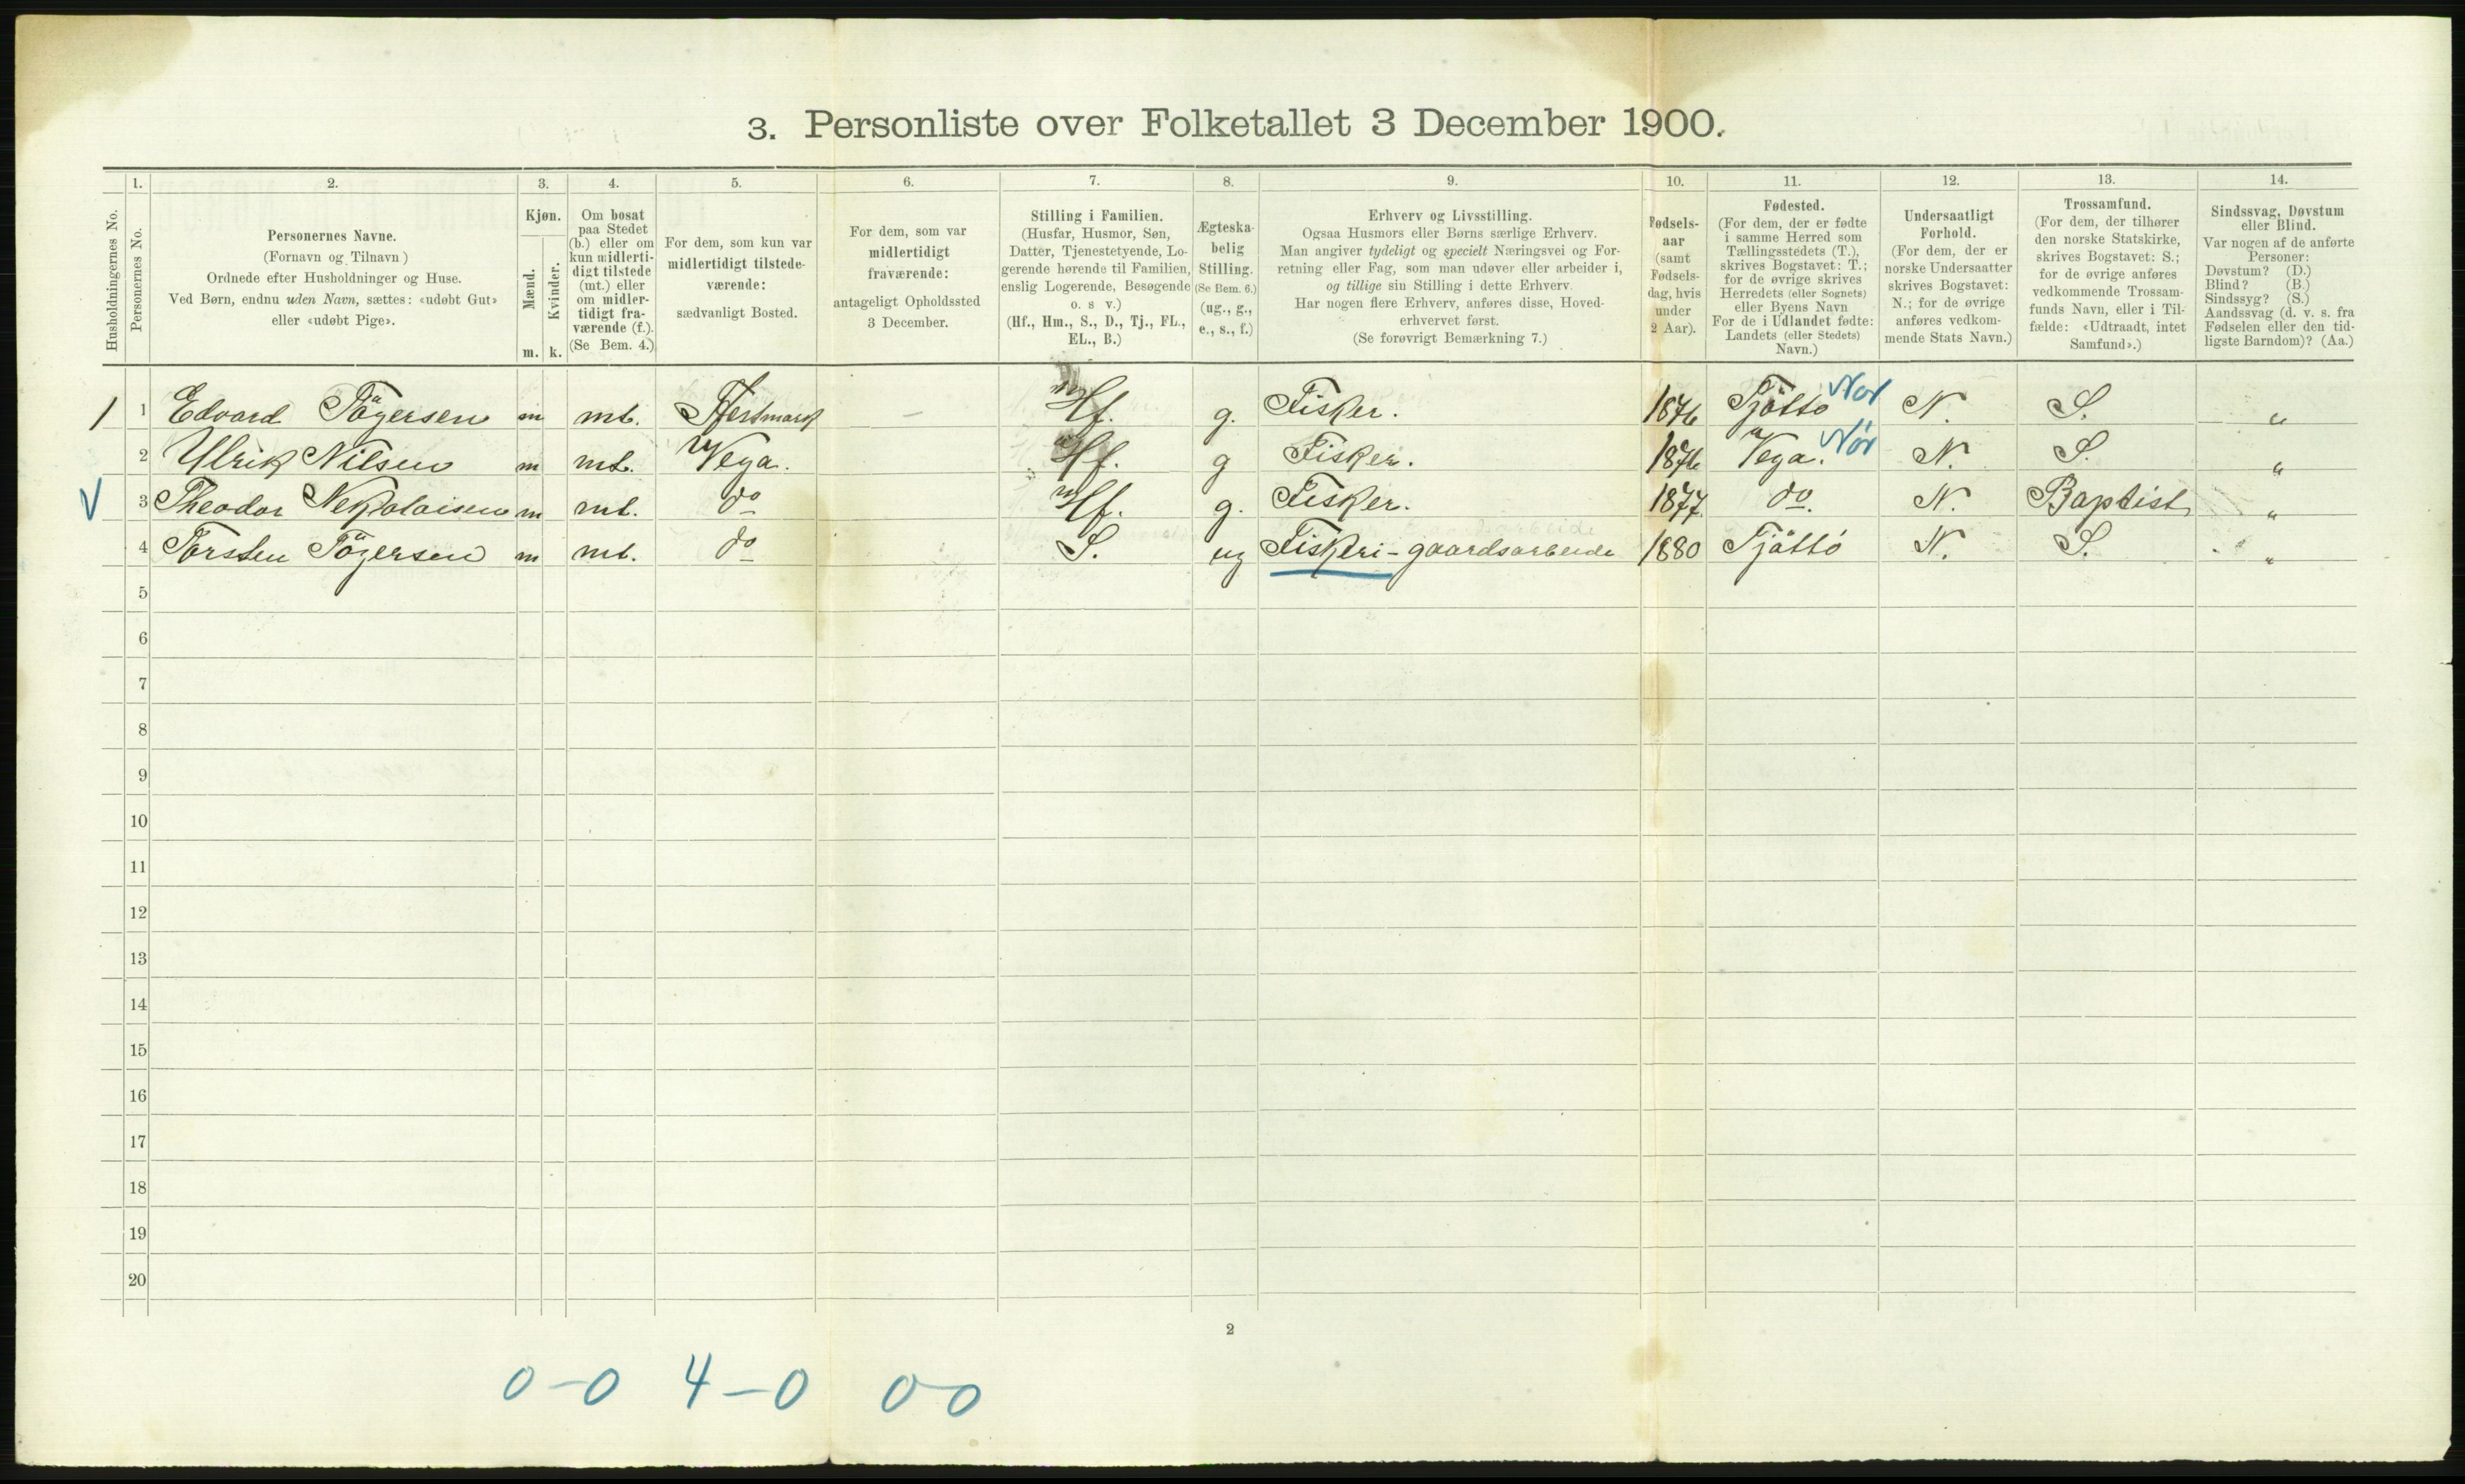 3. Personliste over Folketallet 3 December 1900.
1. 2. 3. 4. 5. 6. 7. 8. 9. 10. 11. 12. 13. 14.
Husholdningernes No.
Personernes No.
Personernes Navne.
(Fornavn og Tilnavn)
Ordnede efter Husholdninger og Huse.
Ved Børn, endnu uden Navn, sættes: «udøbt Gut»
eller «udøbt Pige».
Kjøn.
Mænd.
Kvinder.
m. k.
Om bosat
paa Stedet
(b.) eller om
kun midlerti-
digt tilstede
(mt.) eller
om midler-
tidigt fra-
værende (f.).
(Se Bem. 4.)
For dem, som kun var
midlertidigt tilstede-
værende:
sædvanligt Bosted.
For dem, som var
midlertidigt
fraværende:
antageligt Opholdssted
3 December.
Stilling i Familien.
(Husfar, Husmor, Søn,
Datter, Tjenestetyende, Lo-
gerende hørende til Familien,
enslig Logerende, Besøgende
o. s v.)
(Hf., Hm., S., D., Tj., FL.,
EL., B.)
Ægteska-
belig
Stilling.
(Se Bem. 6.)
(ug., g.,
e., s., f.)
Erhverv og Livsstilling.
Ogsaa Husmors eller Børns særlige Erhverv.
Man angiver tydeligt og specielt Næringsvei og For-
retning eller Fag, som man udøver eller arbeider i,
og tillige sin Stilling i dette Erhverv.
Har nogen flere Erhverv, anføres disse, Hoved-
erhvervet først.
(Se forøvrigt Bemærkning 7.)
Fødsels-
aar
(samt
Fødsels-
dag, hvis
under
2 Aar).
Fødested.
(For dem, der er fødte
i samme Herred som
Tællingsstedets (T.),
skrives Bogstavet: T.;
for de øvrige skrives
Herredets (eller Sognets)
eller Byens Navn
For de i Udlandet fødte:
Landets (eller Stedets)
Navn.)
Undersaatligt
Forhold.
(For dem, der er
norske Undersaatter
skrives Bogstavet:
N.; for de øvrige
anføres vedkom-
mende Stats Navn.)
Trossamfund.
(For dem, der tilhører
den norske Statskirke,
skrives Bogstavet: S.;
for de øvrige anføres
vedkommende Trossam-
funds Navn, eller i Til-
fælde: «Udtraadt, intet
Samfund».)
Sindssvag, Døvstum
eller Blind.
Var nogen af de anførte
Personer:
Døvstum? (D.)
Blind? (B.)
Sindssyg? (S.)
Aandssvag (d. v. s. fra
Fødselen eller den tid-
ligste Barndom)? (Aa.)
1 1 Edvard Tögersen m mt. — Hf. g. Fisker. 1876 Tjöttö Nor N. S. "
2 Ulrik Nilsen m mt. Vega. Hf. g Fisker. 1876 Vega. Nor N. S. "
V 3 Theodor Nekolaisen m mt. do Hf. g. Fisker. 1877. do. N. Baptist "
4 Torsten Tögersen m mt. do S. ug Fiskeri-gaardsarbeide 1880 Tjöttö N. S. "
5
6
7
8
9
10
11
12
13
14
15
16
17
18
19
20
2
0-0 4-0 00